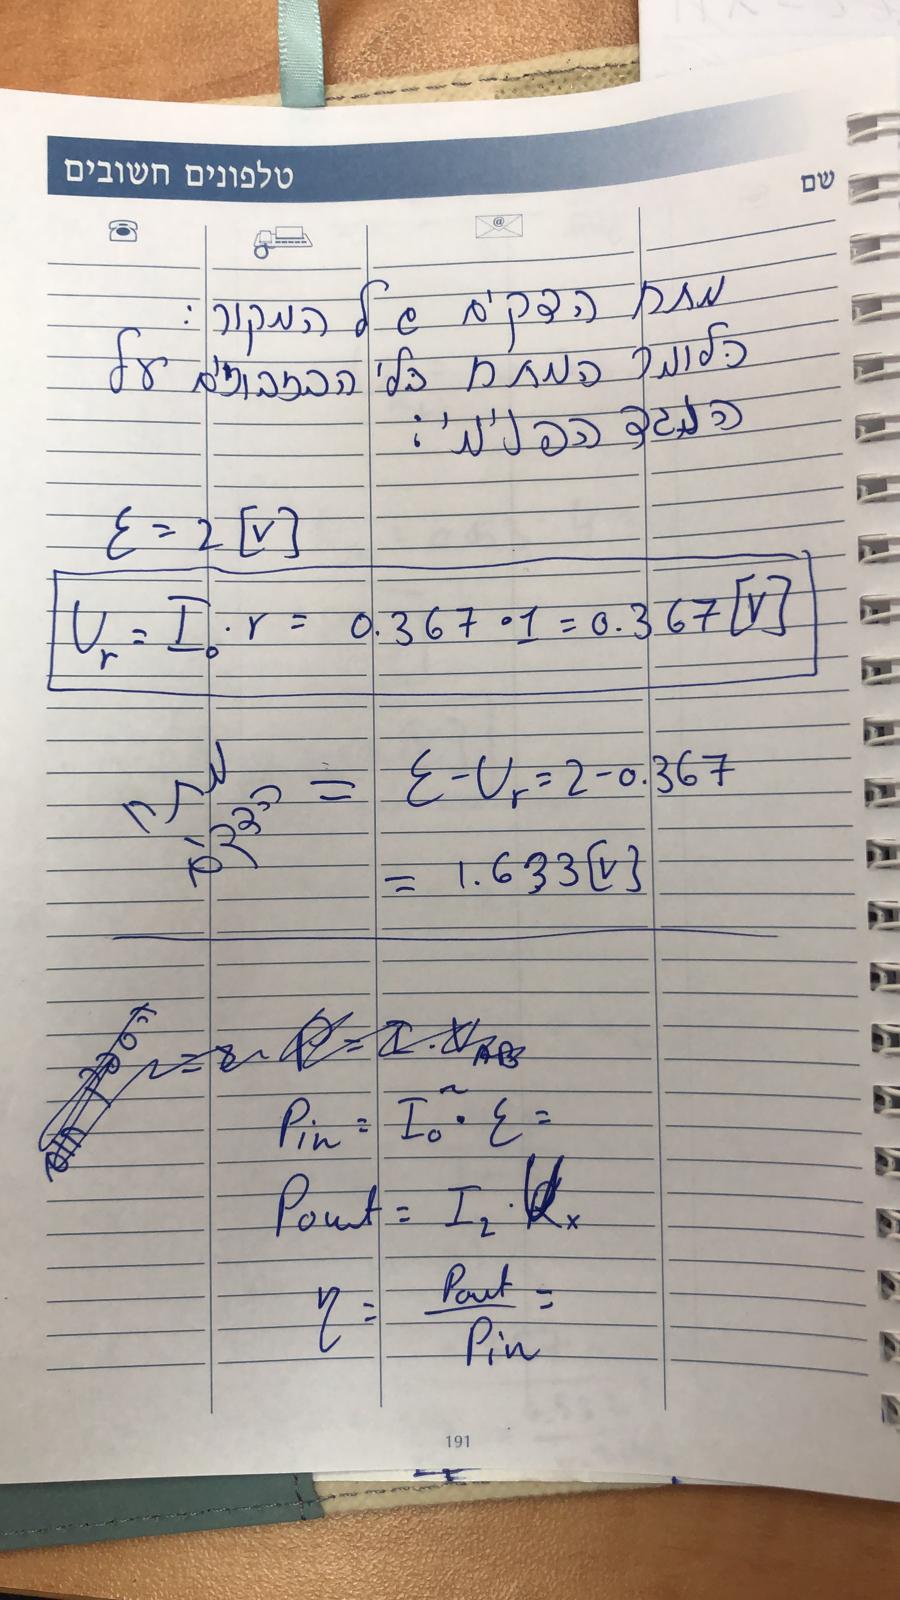 טלפונים חשובים
שם
מתח הדקים של המקור:
כלומר המתח בלי הבזבוזים על
הנגד הפנימי:
ε = 2 [V]
U_r = I_0 · r = 0.367 · 1 = 0.367 [V]
מתח הדקים = ε - U_r = 2 - 0.367
= 1.633 [V]
P = I · U_AB
Pin = I_0 · ε =
Pout = I_2 · U_x
η = Pout / Pin =
191